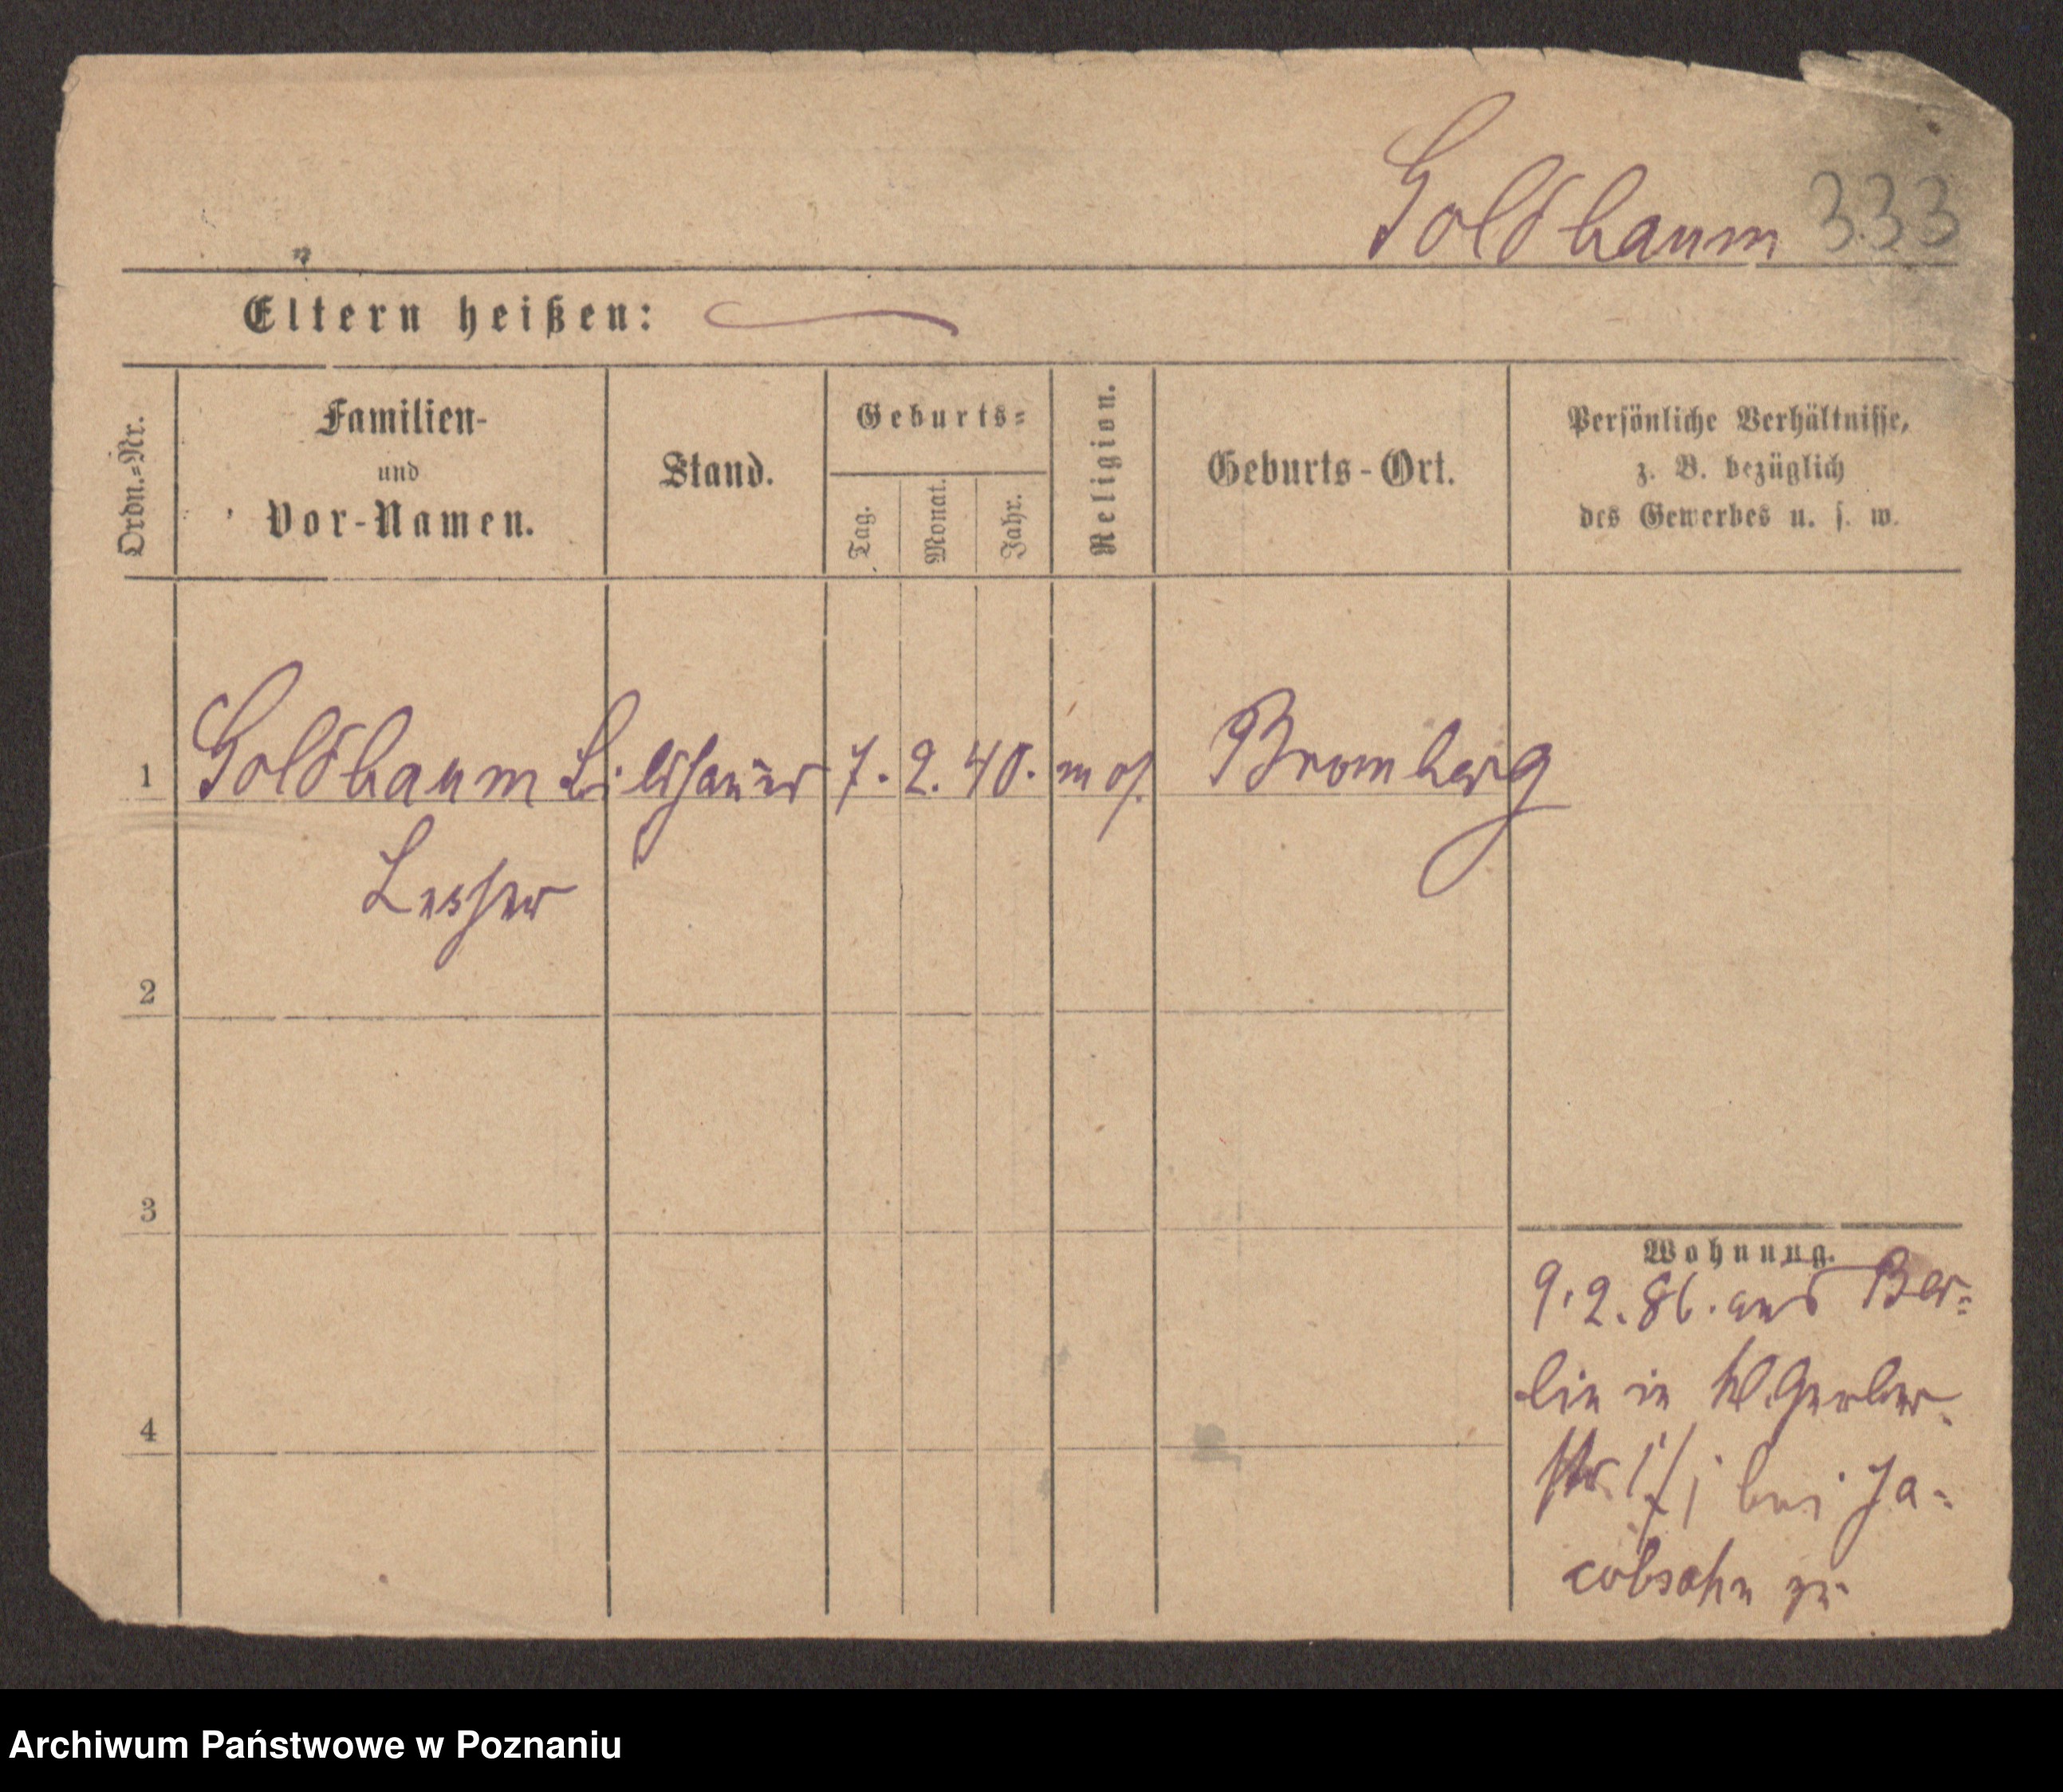 Goldbaum 333
Eltern heißen:
Ordn.=Nr.
Familien-
und
Vor-Namen.
Stand.
Geburts=
Tag.
Monat.
Jahr.
Religion.
Geburts-Ort.
Persönliche Verhältnisse,
z. B. bezüglich
des Gewerbes u. s. w.
1 Goldbaum Bildhauer 7. 2. 40. mos. Bromberg
Lesser
2
3
4
Wohnung.
9. 2. 86. aus Ber=
lin in Kl. Gerber
str. bei Ja=
cobsohn zu
Archiwum Państwowe w Poznaniu